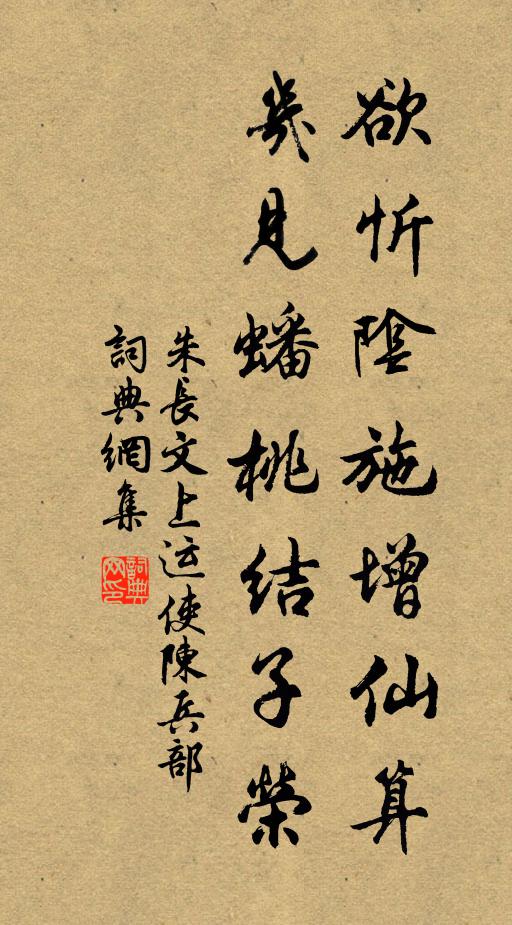 欲忻陰施增仙算
幾見蟠桃結子榮
朱長文上运使陳兵部
詞典網集
詞典網印